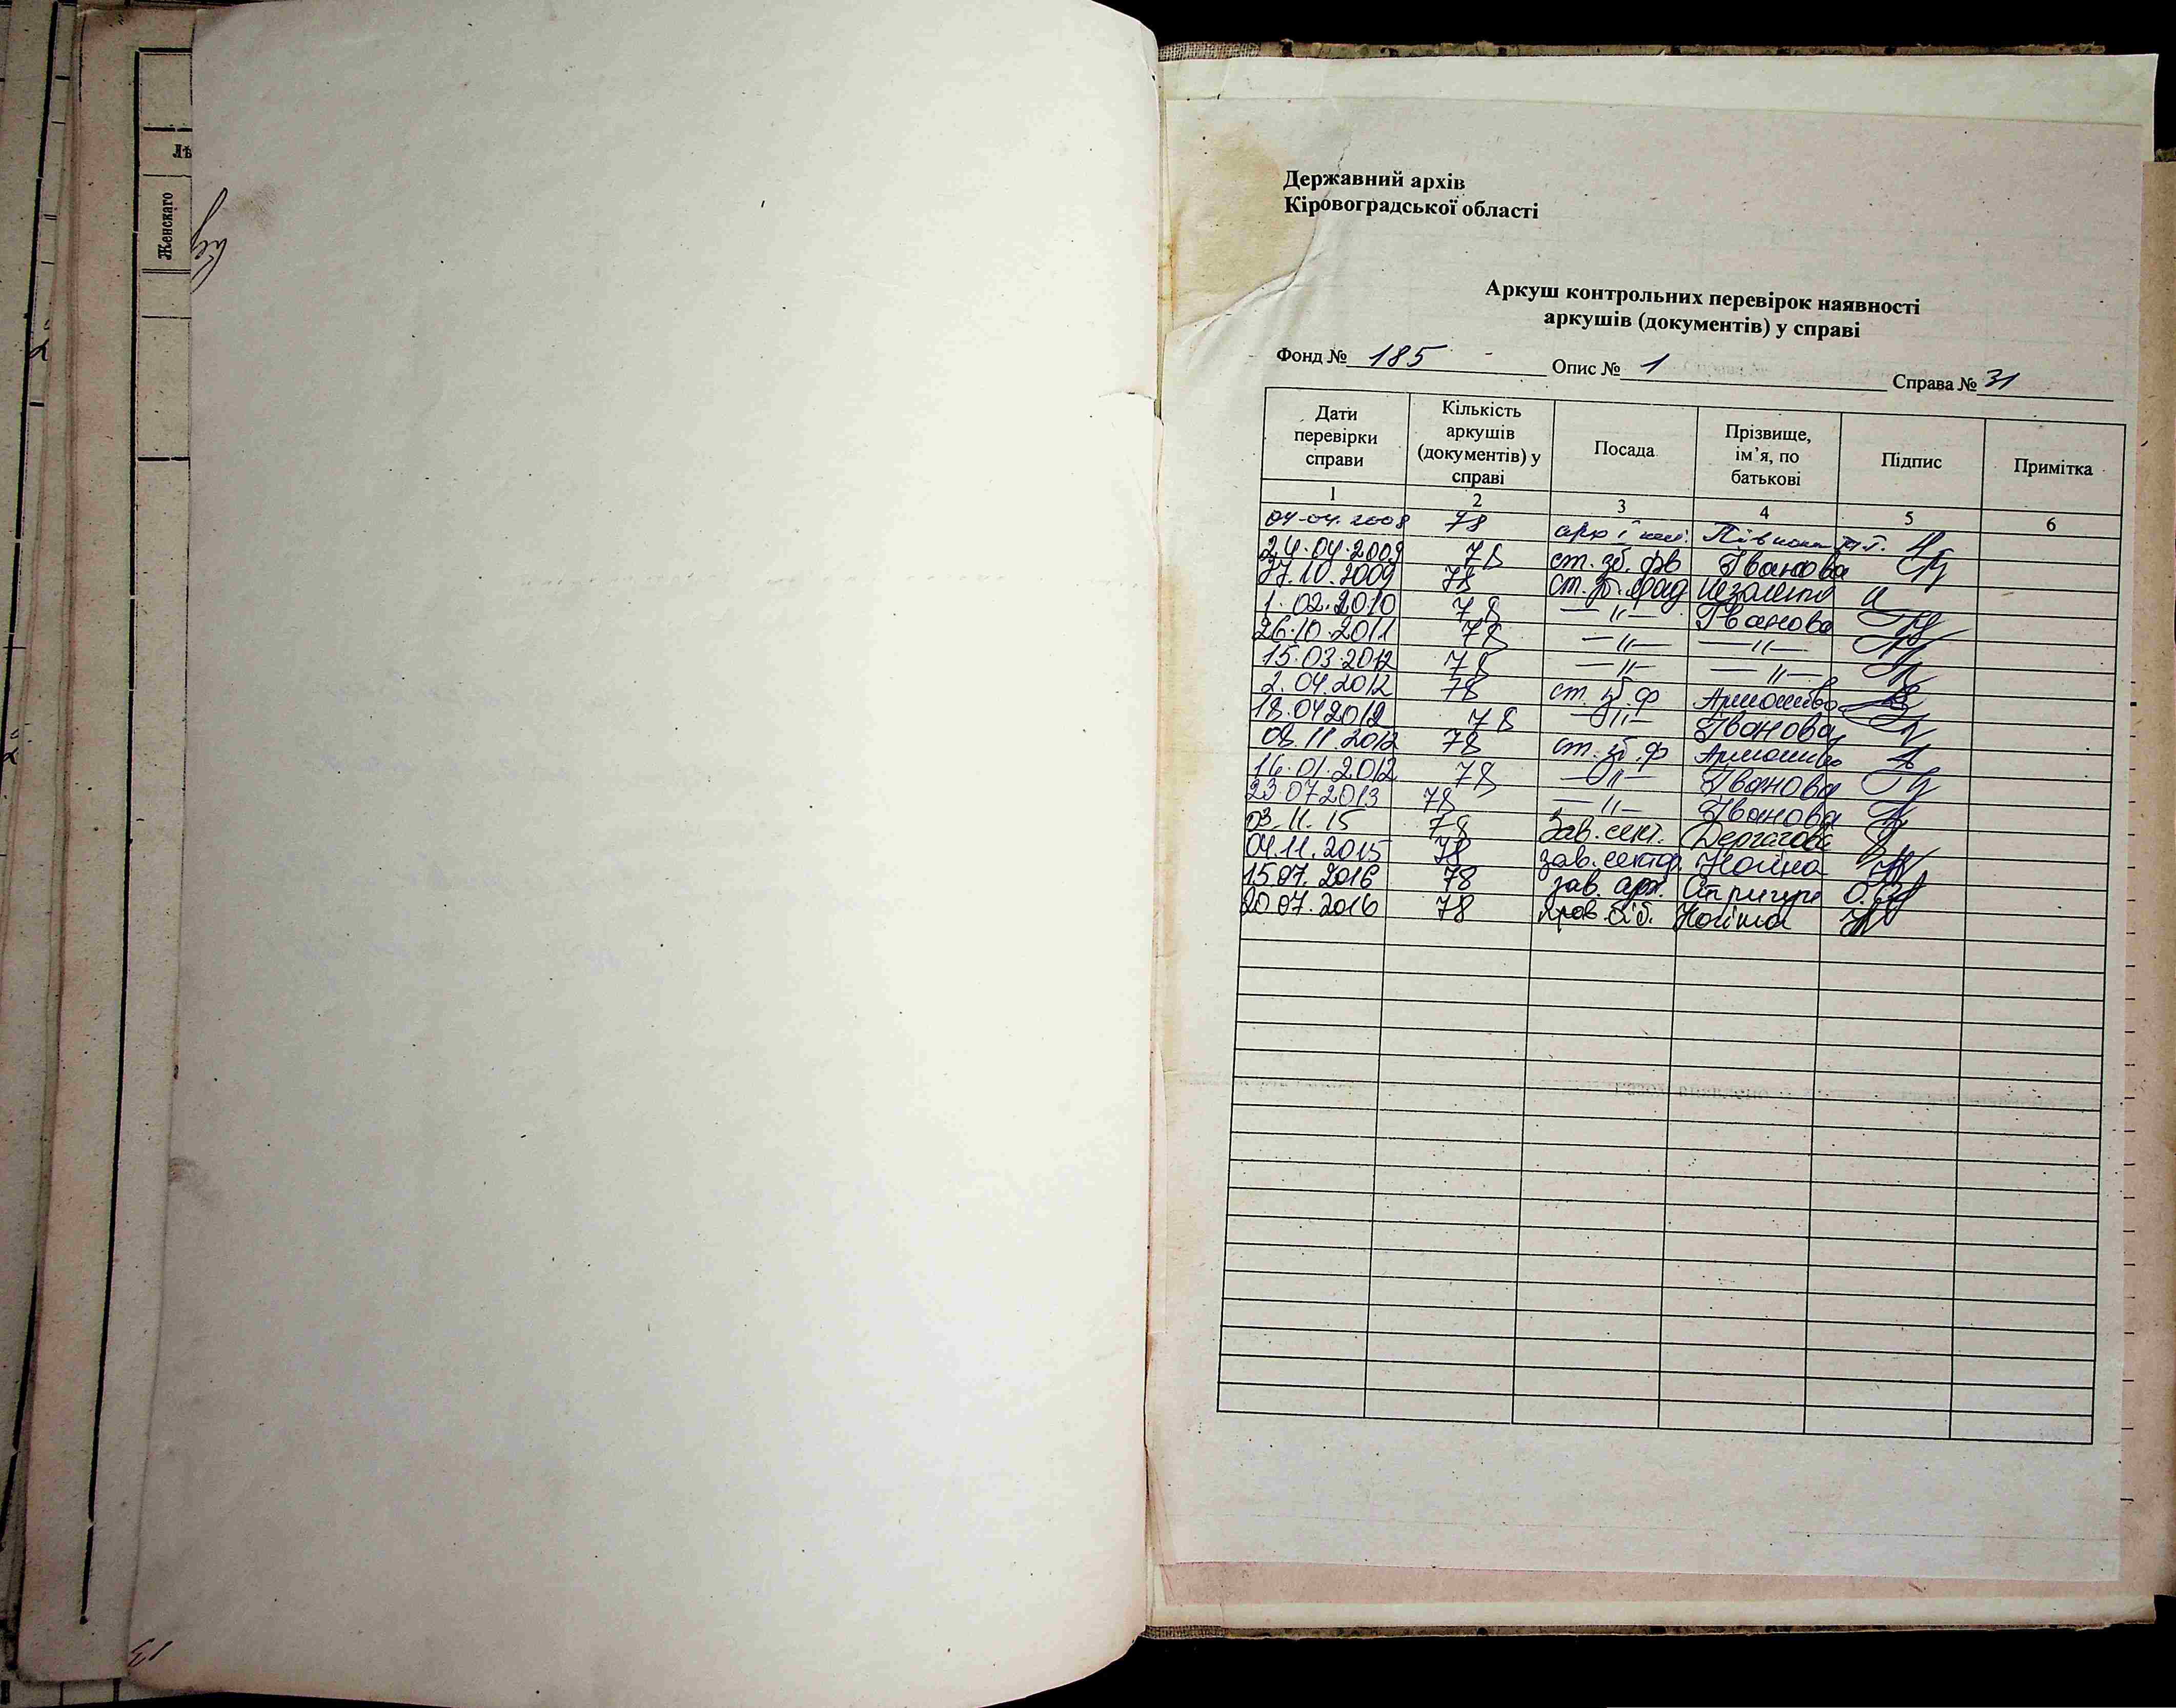 Лѣ
Женскаго
Державний архів
Кіровоградської області
Аркуш контрольних перевірок наявності
аркушів (документів) у справі
Фонд № 185 Опис № 1 Справа № 31
Дати перевірки справи Кількість аркушів (документів) у справі Посада Прізвище, ім’я, по батькові Підпис Примітка
1 2 3 4 5 6
04.04.2008 78
24.04.2009 78 ст. зб. фв Іванова
27.10.2009 78 ст. зб. фонд
1.02.2010 78 —〃— Іванова
26.10.2011 78 —〃— —〃—
15.03.2012 78 —〃— —〃—
2.04.2012 78 ст. зб. ф
18.04.2012 78 —〃— Іванова
08.11.2012 78 ст. зб. ф
16.01.2012 78 —〃— Іванова
23.07.2013 78 —〃— Іванова
03.11.15 78 Зав. сект. Дергачова
04.11.2015 78 зав. сектор
15.07.2016 78 зав. арх.
20.07.2016 78